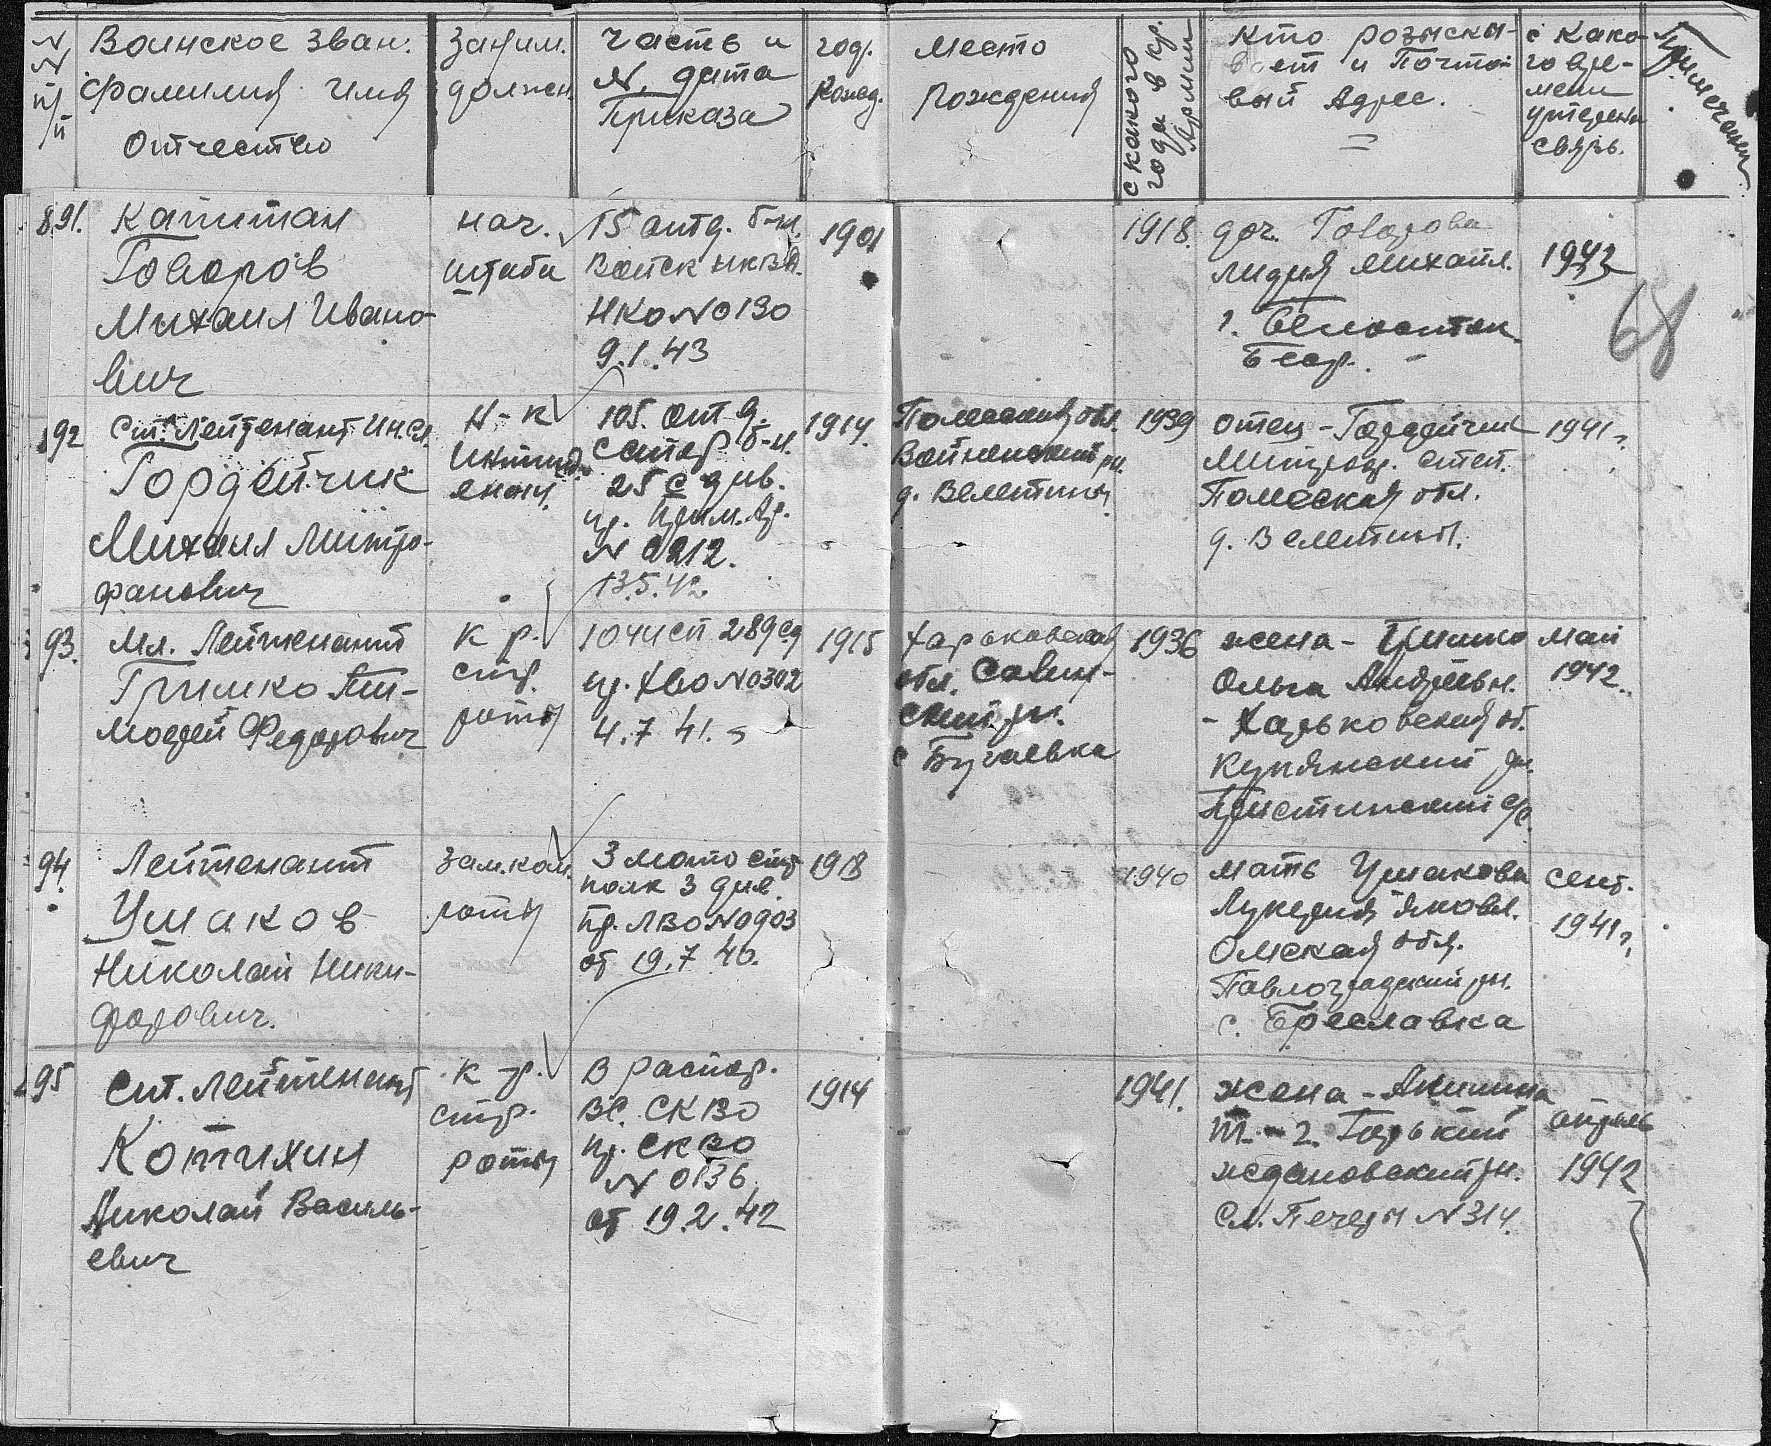 №№ п/п
Воинское зван.
фамилия имя
Отчество
Заним.
должн.
Часть и
N, дата
Приказа
год.
рожд.
Место
рождения
с какого
года в кр.
Армии
Кто розыски-
вает и Почто-
вый Адрес.
с како-
го вре-
мени
утеряна
связь.
Примечание
68
891.
Капитан
Говоров
Михаил Ивано-
вич
нач.
штаба
15 отд. б-н.
Войск НКВД.
НКО N 0130
9.1.43
1901
1918.
доч. Говорова
Лидия Михайл.
г. Белосток
Бсср.
1942
92
Ст. Лейтенант Ин.сл.
Гордейчик
Михаил Митро-
фанович
Н-к
105. отд.
сапер б-н.
25 с див.
пр. Прим. Ар.
N 0212.
13.5.42
1914.
Полесская обл.
д. Велетины
1939
отец - Гордейчик
Митроф. степ.
Полесская обл.
д. Велетины.
1941 г.
93.
Мл. Лейтенант
Гришко Ти-
мофей Федорович
К р.
стр.
роты
1041 СП 289 сд
пр. ХВО N 0302
4.7 41.
1915
Харьковская
обл. Савин-
ский рн.
с Бугаевка
1936
жена - Гришко
Ольга Андреевн.
- Харьковская об.
Купянский рн.
Пристинский с/с.
май
1942.
94.
Лейтенант
Ушаков
Николай Ники-
форович.
Зам.ком.
роты
3 мото стр
полк 3 див.
Пр. ЛВО N 0903
от 19.7 40.
1918
1940
мать Ушакова
Лукерия Яковл.
Омская обл.
Павлоградский рн.
с. Бреславка
сент.
1941 г.
95
Ст. Лейтенант
Котихин
Николай Василь-
евич
К-р.
стр.
роты
В распор.
ВС. СКВО
пр. СКВО
N 0136
от 19.2.42
1914
1941.
жена - Аникина
Т. - г. Горький
Ждановский рн.
Сл. Печеры N 314.
апрель
1942